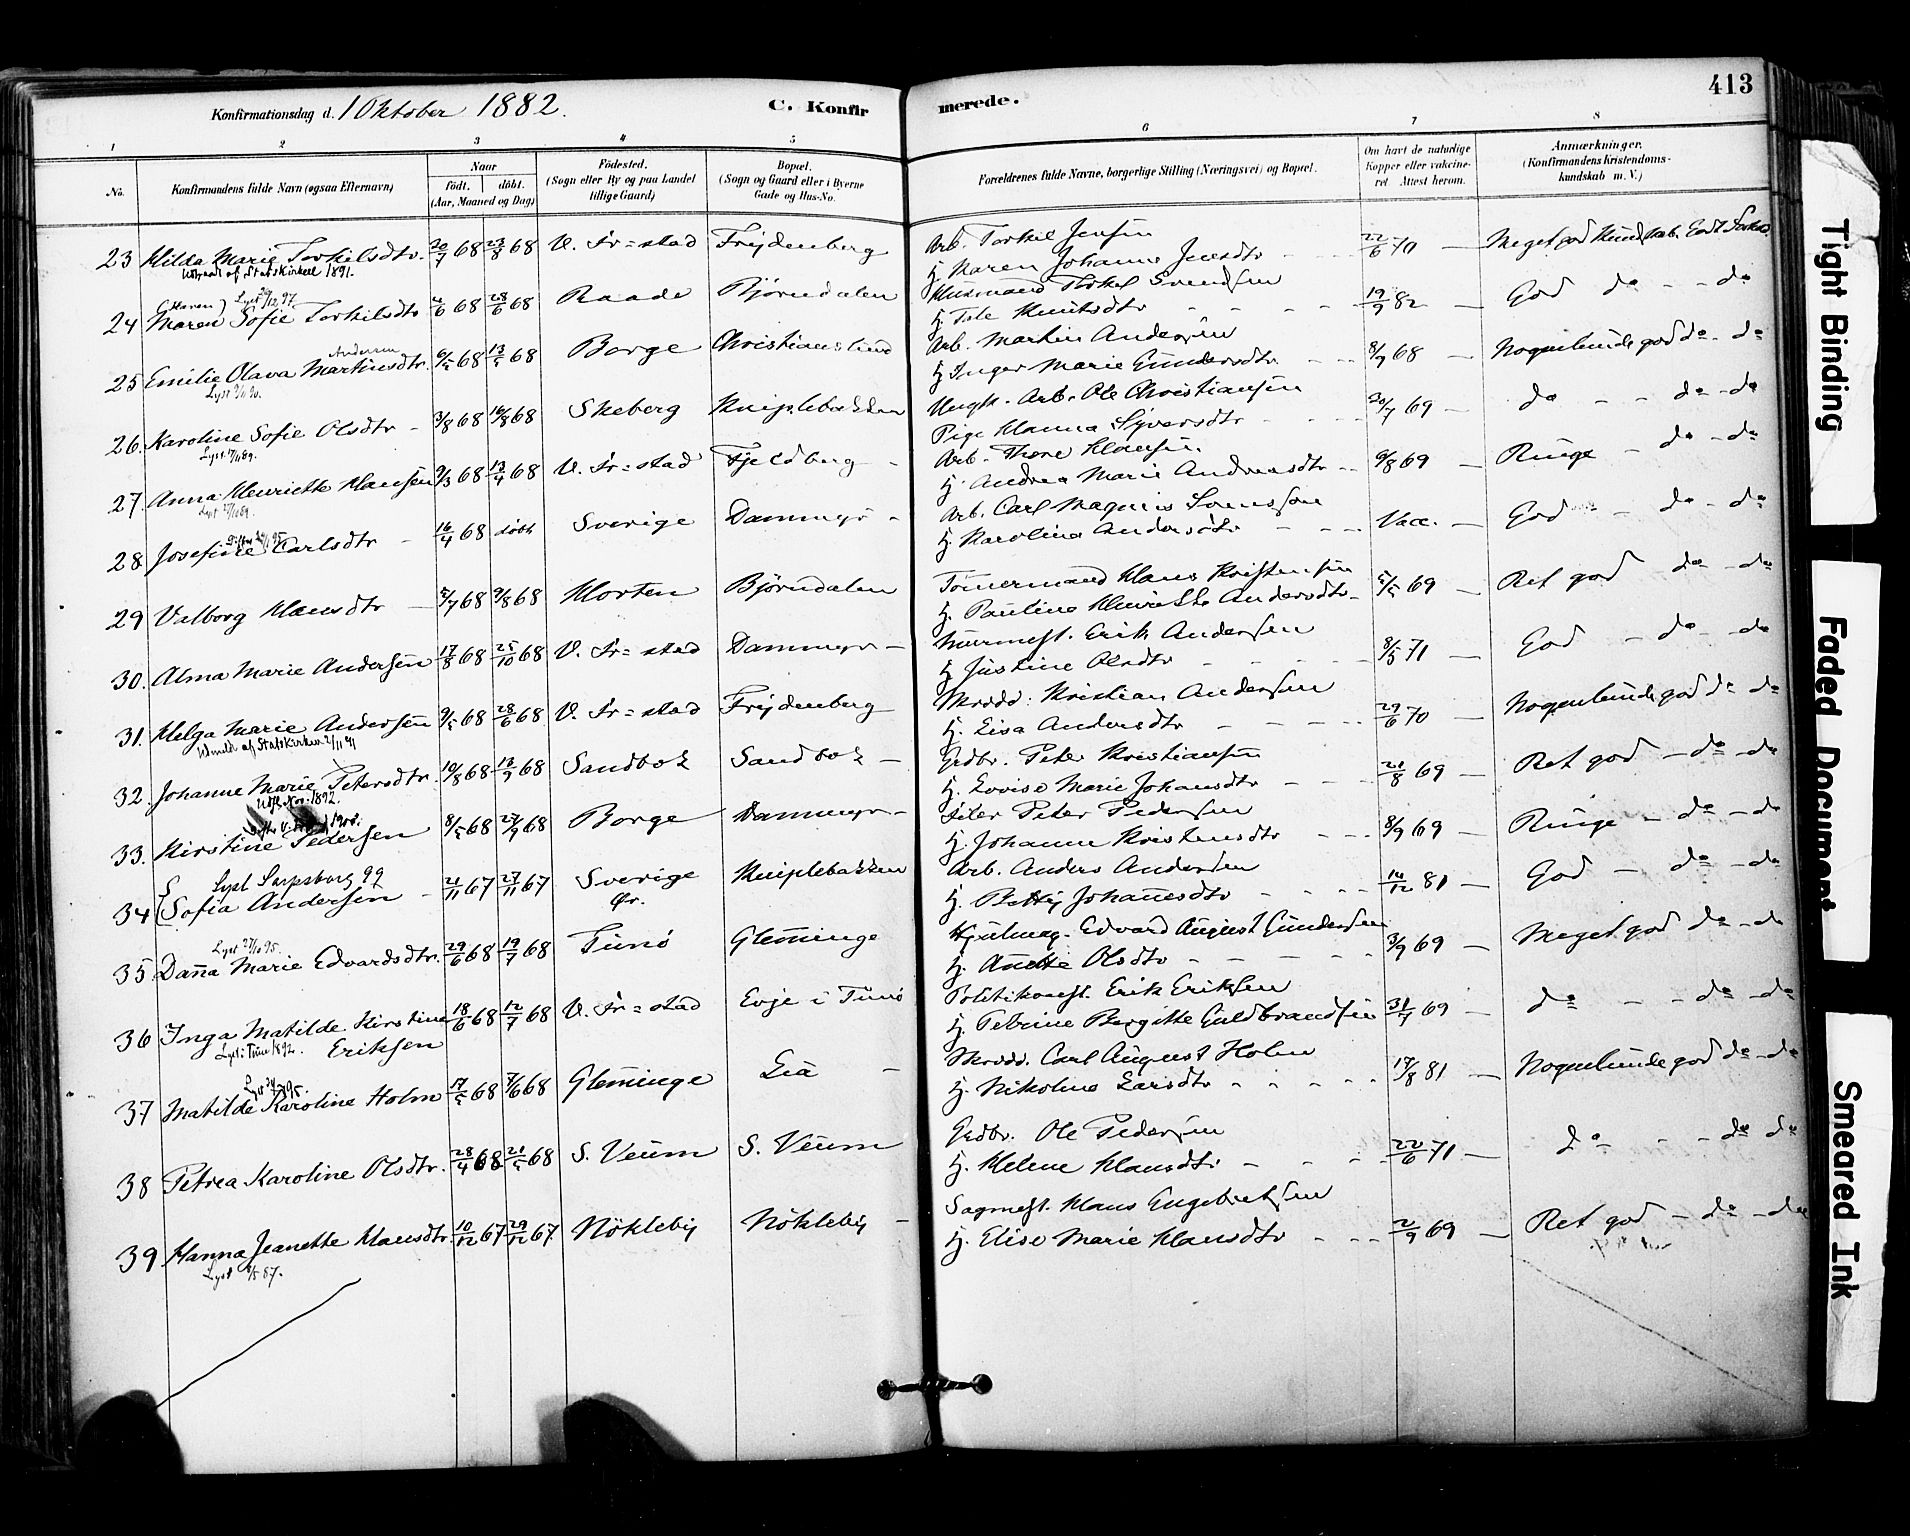 413
Konfirmationsdag d. 1 Oktober 1882.
C. Konfirmerede.
1 2 3 4 5 6 7 8
No.
Konfirmandens fulde Navn (ogsaa Efternavn)
Naar født. døbt. (Aar, Maaned og Dag)
Födested. (Sogn eller By og paa Landet tillige Gaard)
Bopæl. (Sogn og Gaard eller i Byerne Gade og Hus-No.
Forældrenes fulde Navne, borgerlige Stilling (Næringsvei) og Bopæl.
Om havt de naturlige Kopper eller vakcineret Attest herom.
Anmærkninger. (Konfirmandens Kristendomskundskab m. V.)
23 Hilda Marie Torkilsdtr. 20/7 68 23/8 68 V. Fr=stad Frydenberg Arb. Torkil Jensen 22/6 70 — Meget god Kundskab. Godt
af Statskirken 1891. H. Karen Johanne Jensdtr
24 Maren Sofie Torkilsdtr 2/6 68 28/6 68 Raade Björndalen Husmand Torkel Svendsen 19/9 82 — God do - - do
H. Knutsdtr
Andersen
25 Emilie Olava Martinsdtr. 6/5 68 13/5 68 Borge Christianslund Arb. Martin Andersen 8/9 68 — Nogenlunde god do - do
H Inger Marie Gundersdtr
26. Karoline Sofie Olsdtr 3/8 68 16/8 68 Skeberg Kniplebakken Ungk. Arb. Ole Christiansen 20/7 69 — do - - do - do
Pige Hanna Syversdtr
27. Anna Henriette Hansen 9/3 68 13/4 68 V. Fr=stad Fjeldberg Arb. Thore Hansen 9/8 69 — Ringe - do - do
H. Andrea Marie Andreasdtr
28 Josefine Carlsdtr 16/4 68 döbt Sverige Dammyr Arb. Carl Magnus Svensson Vacc. — God - do - do
H. Karolina Andersdtr
29 Valborg Hansdtr 5/7 68 9/8 68 Horten Björndalen Tömermand Hans Kristensen 5/5 69 — Ret god do - do
H. Pauline Henriette Andersdtr
30. Alma Marie Andersen 17/8 68 25/10 68 V. Fr=stad Dammyr Murmest. Erik Andersen 8/5 71 — God - do - do
H Justine Olsdtr
31. Helga Marie Andersen 9/5 68 28/6 68 V. Fr=stad Frydenberg Skrædd: Kristian Andersen 29/6 70 Nogenlunde god do do
Udmeldt af Statskirken 2/11 91 H. Lisa Andersdtr
32. Johanne Marie Petersdtr. 10/8 68 13/9 68 Sandbæk Sandbæk Grdbr. Peter Kristiansen 21/8 69 — Ret god - do - do
1892. H. Lovise Marie Johansdtr
33. Kirstine Pedersen 8/5 68 27/9 68 Borge Dammyr Peter Pedersen 8/9 69 — Ringe - do - do
H. Johanne Kristensdtr
Lyst Sarpsborg 99
34 Sofia Andersen 21/11 67 27/11 67 Sverige Kniplebakken Arb. Anders Andersen 14/12 81 — God - do - do
H. Betty Johannesdtr
Lyst 27/10 95.
35 Danna Marie Edvardsdtr. 29/6 68 19/7 68 Tunø Glemminge Hjulmag. Edvard August Gundersen 3/9 69 — Meget god do - do
H. Anette Olsdtr
36 Inga Matilde Kirstine Eriksen 18/6 68 12/7 68 V. Fr=stad Evje i Tunø Politikonst. Erik Eriksen 31/7 69 — do - - do - do
Lyst i Tune 1892. H. Petrine Birgitte Guldbrandsen
37 Matilde Karoline Holm 17/5 68 7/6 68 Glemminge Lia Skrædd. Carl August Holm 17/8 81 — Nogenlunde god do - do
H. Nikoline Larsdtr
38 Petrea Karoline Olsdtr. 28/4 68 21/5 68 S. Veum S. Veum Grdbr. Ole Pedersen 22/6 71 — do - - do do
H. Helene Hansdtr
39 Hanna Jeanette Hansdtr. 10/12 67 29/12 67 Nökleby Nökleby Sagmest. Hans Engebretsen 2/9 69 — Ret god - do - do
Lyst 87. H. Elise Marie Hansdtr
Tight Binding
Faded Document
Smeared Ink